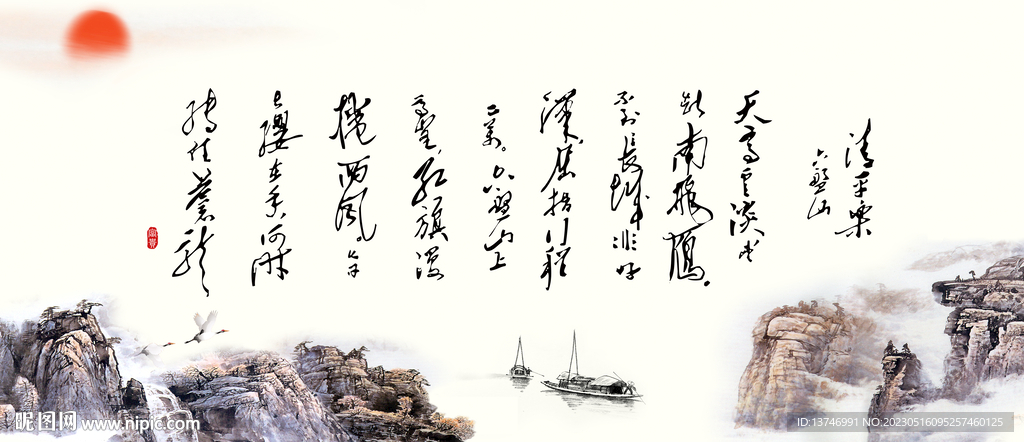 清平樂
六盤山
天高雲淡望
斷南飛雁。
不到長城非好
漢,屈指行程
二萬。六盤山上
高峰,紅旗漫
捲西風。今日
長纓在手,何時
縛住蒼龍
昵图网 www.nipic.com
ID:13746991 NO:20230516095257460125